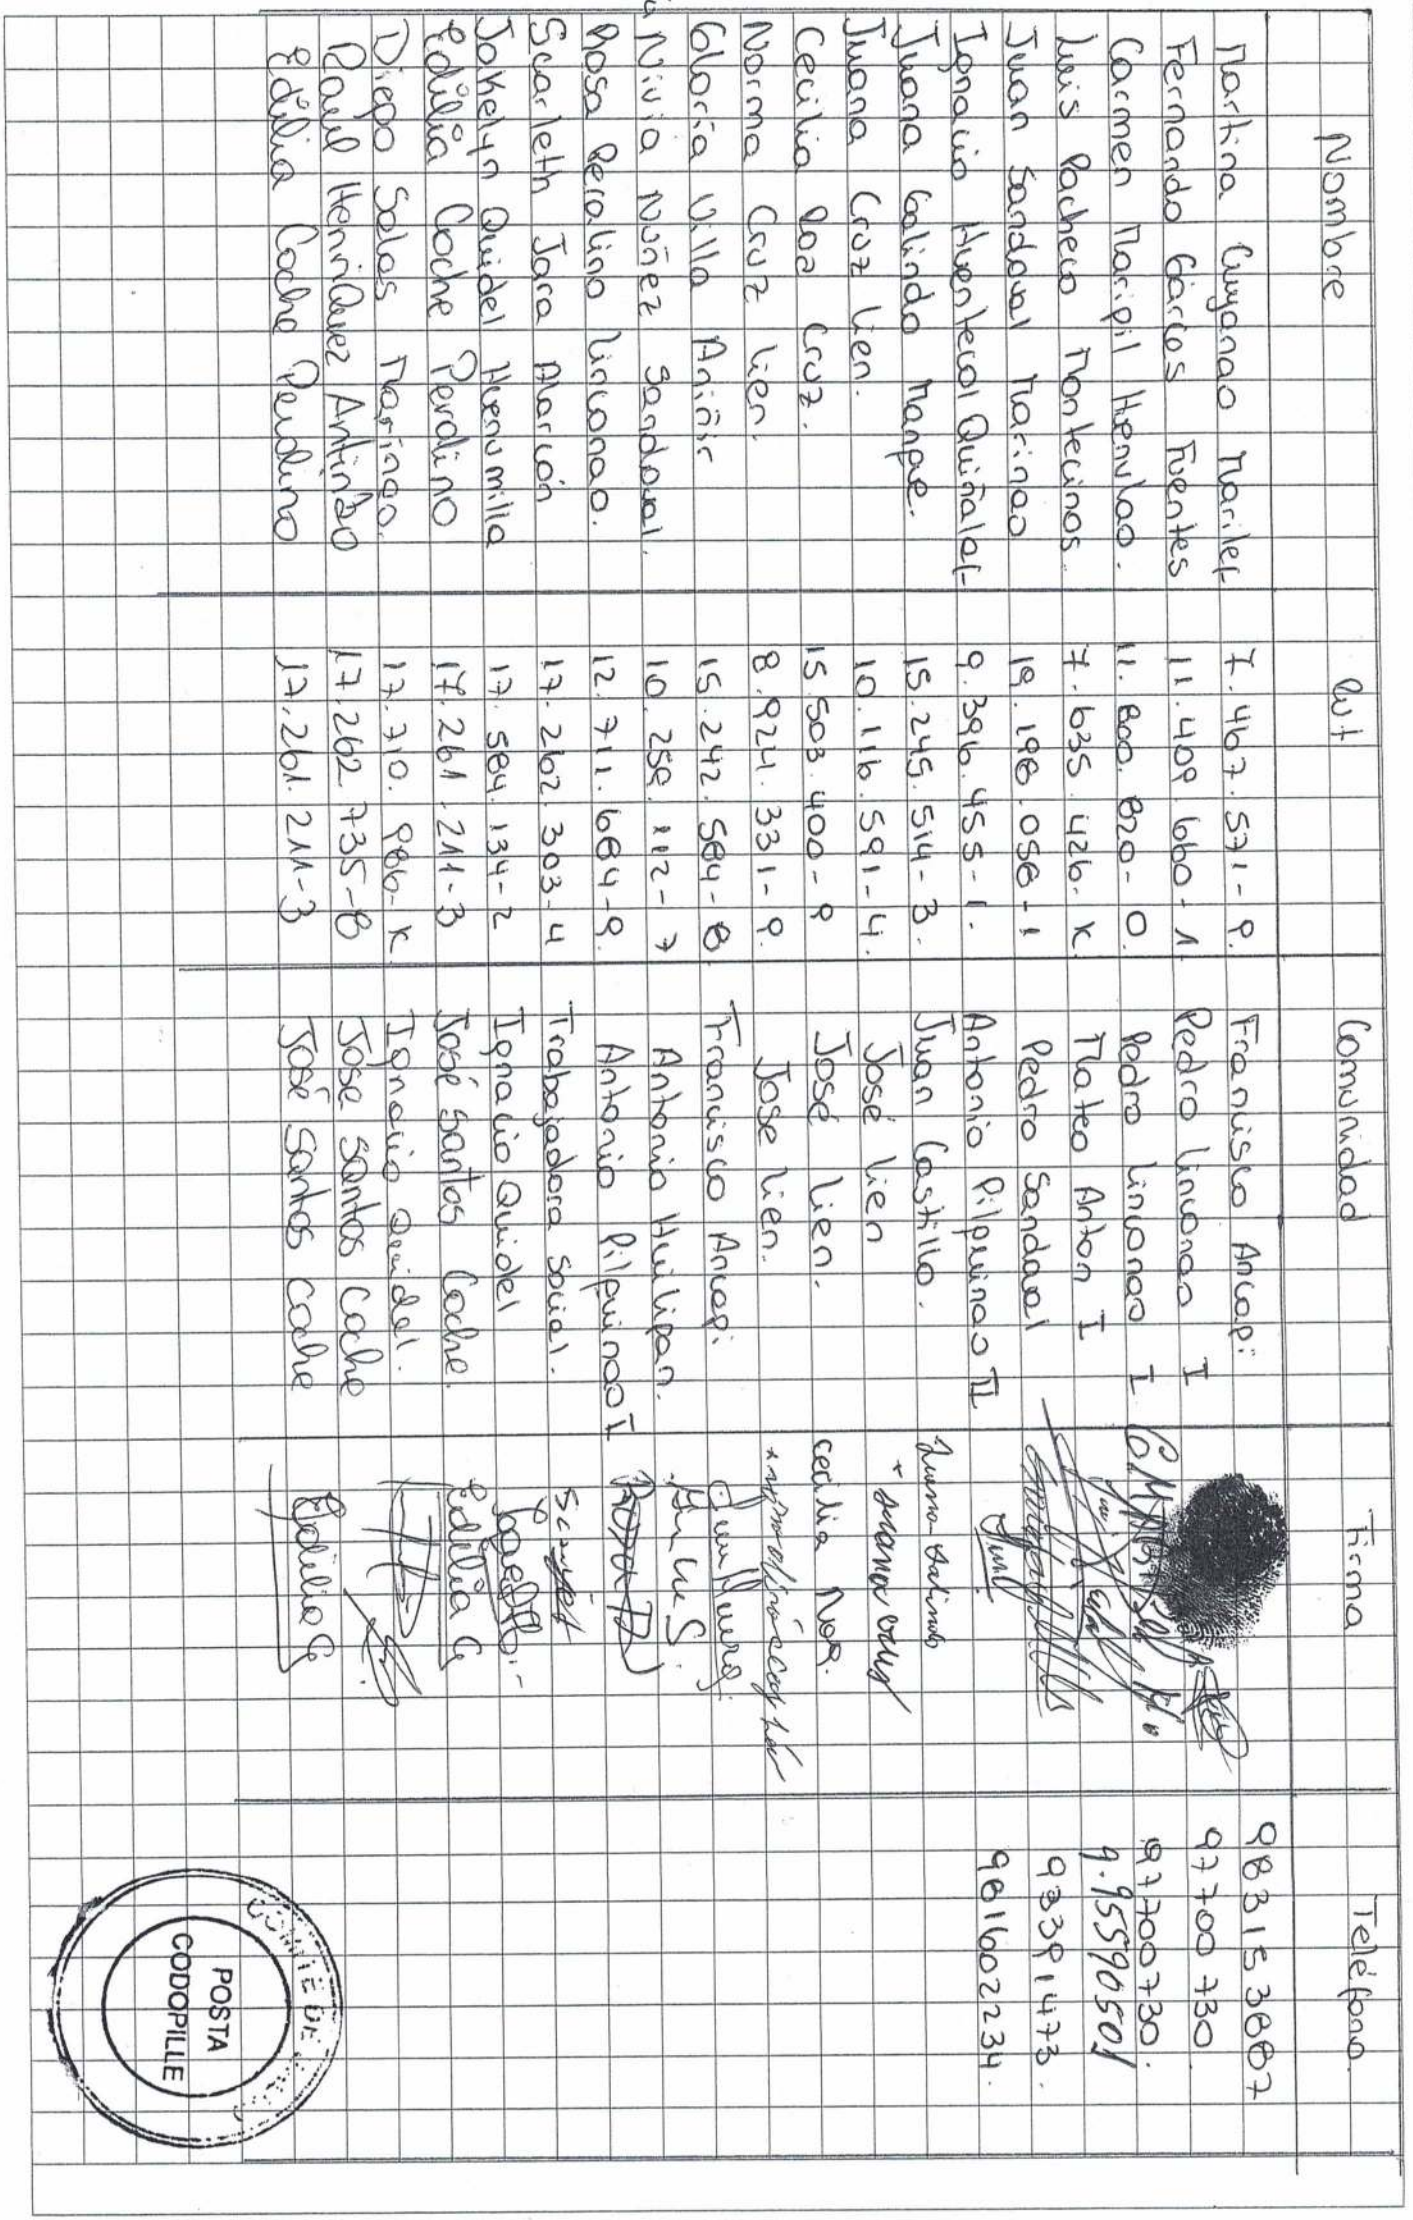 Nombre Rut Comunidad Firma Teléfono
Martina Cuyanao Marilef 7.467.571-9. Francisco Ancapi 983153887
Fernando Garcos Fuentes 11.409.660-1 Pedro Linconao I 97700730
Carmen Maripil Henulao. 11.800.820-0. Pedro Linconao I 97700730.
Luis Pacheco Montecinos. 7.635.426-K. Mateo Anton I 9.95590501
Juan Sandoval Marinao 19.198.058-1 Pedro Sandoval 93391473.
Ignacio Huentecol Quiñalaf 9.396.455-1. Antonio Pilquinao II 981602234.
Juana Galindo Manque. 15.245.514-3. Juan Castillo. Juana Galindo
Juana Cruz Lien. 10.116.591-4. José Lien
Cecilia Paz Cruz. 15.503.400-9 José Lien. cecilia
Norma Cruz Lien. 8.924.331-9. Jose Lien.
Gloria Villa Aniñir 15.242.584-8. Francisco Ancapi.
Nivia Núñez Sandoval. 10.258.112-7 Antonio Huilipan.
Rosa Peralino Linconao. 12.711.684-9. Antonio Pilquinao I
Scarleth Jara Alarcón 17.262.303-4 Trabajadora Social.
Jokelyn Quidel Huenumilla 17.584.134-2 Ignacio Quidel
Edilia Coche Perdino 17.261.211-3 José Santos Coche. Edilia C
Diego Salas Marinao. 17.710.986-K Ignacio Quidel.
Raul Henriquez Antinao 17.262.735-8 Jose Santos Coche
Edilia Coche Perdino 17.261.211-3 José Santos Coche Edilia C
COMITE DE
POSTA
CODOPILLE